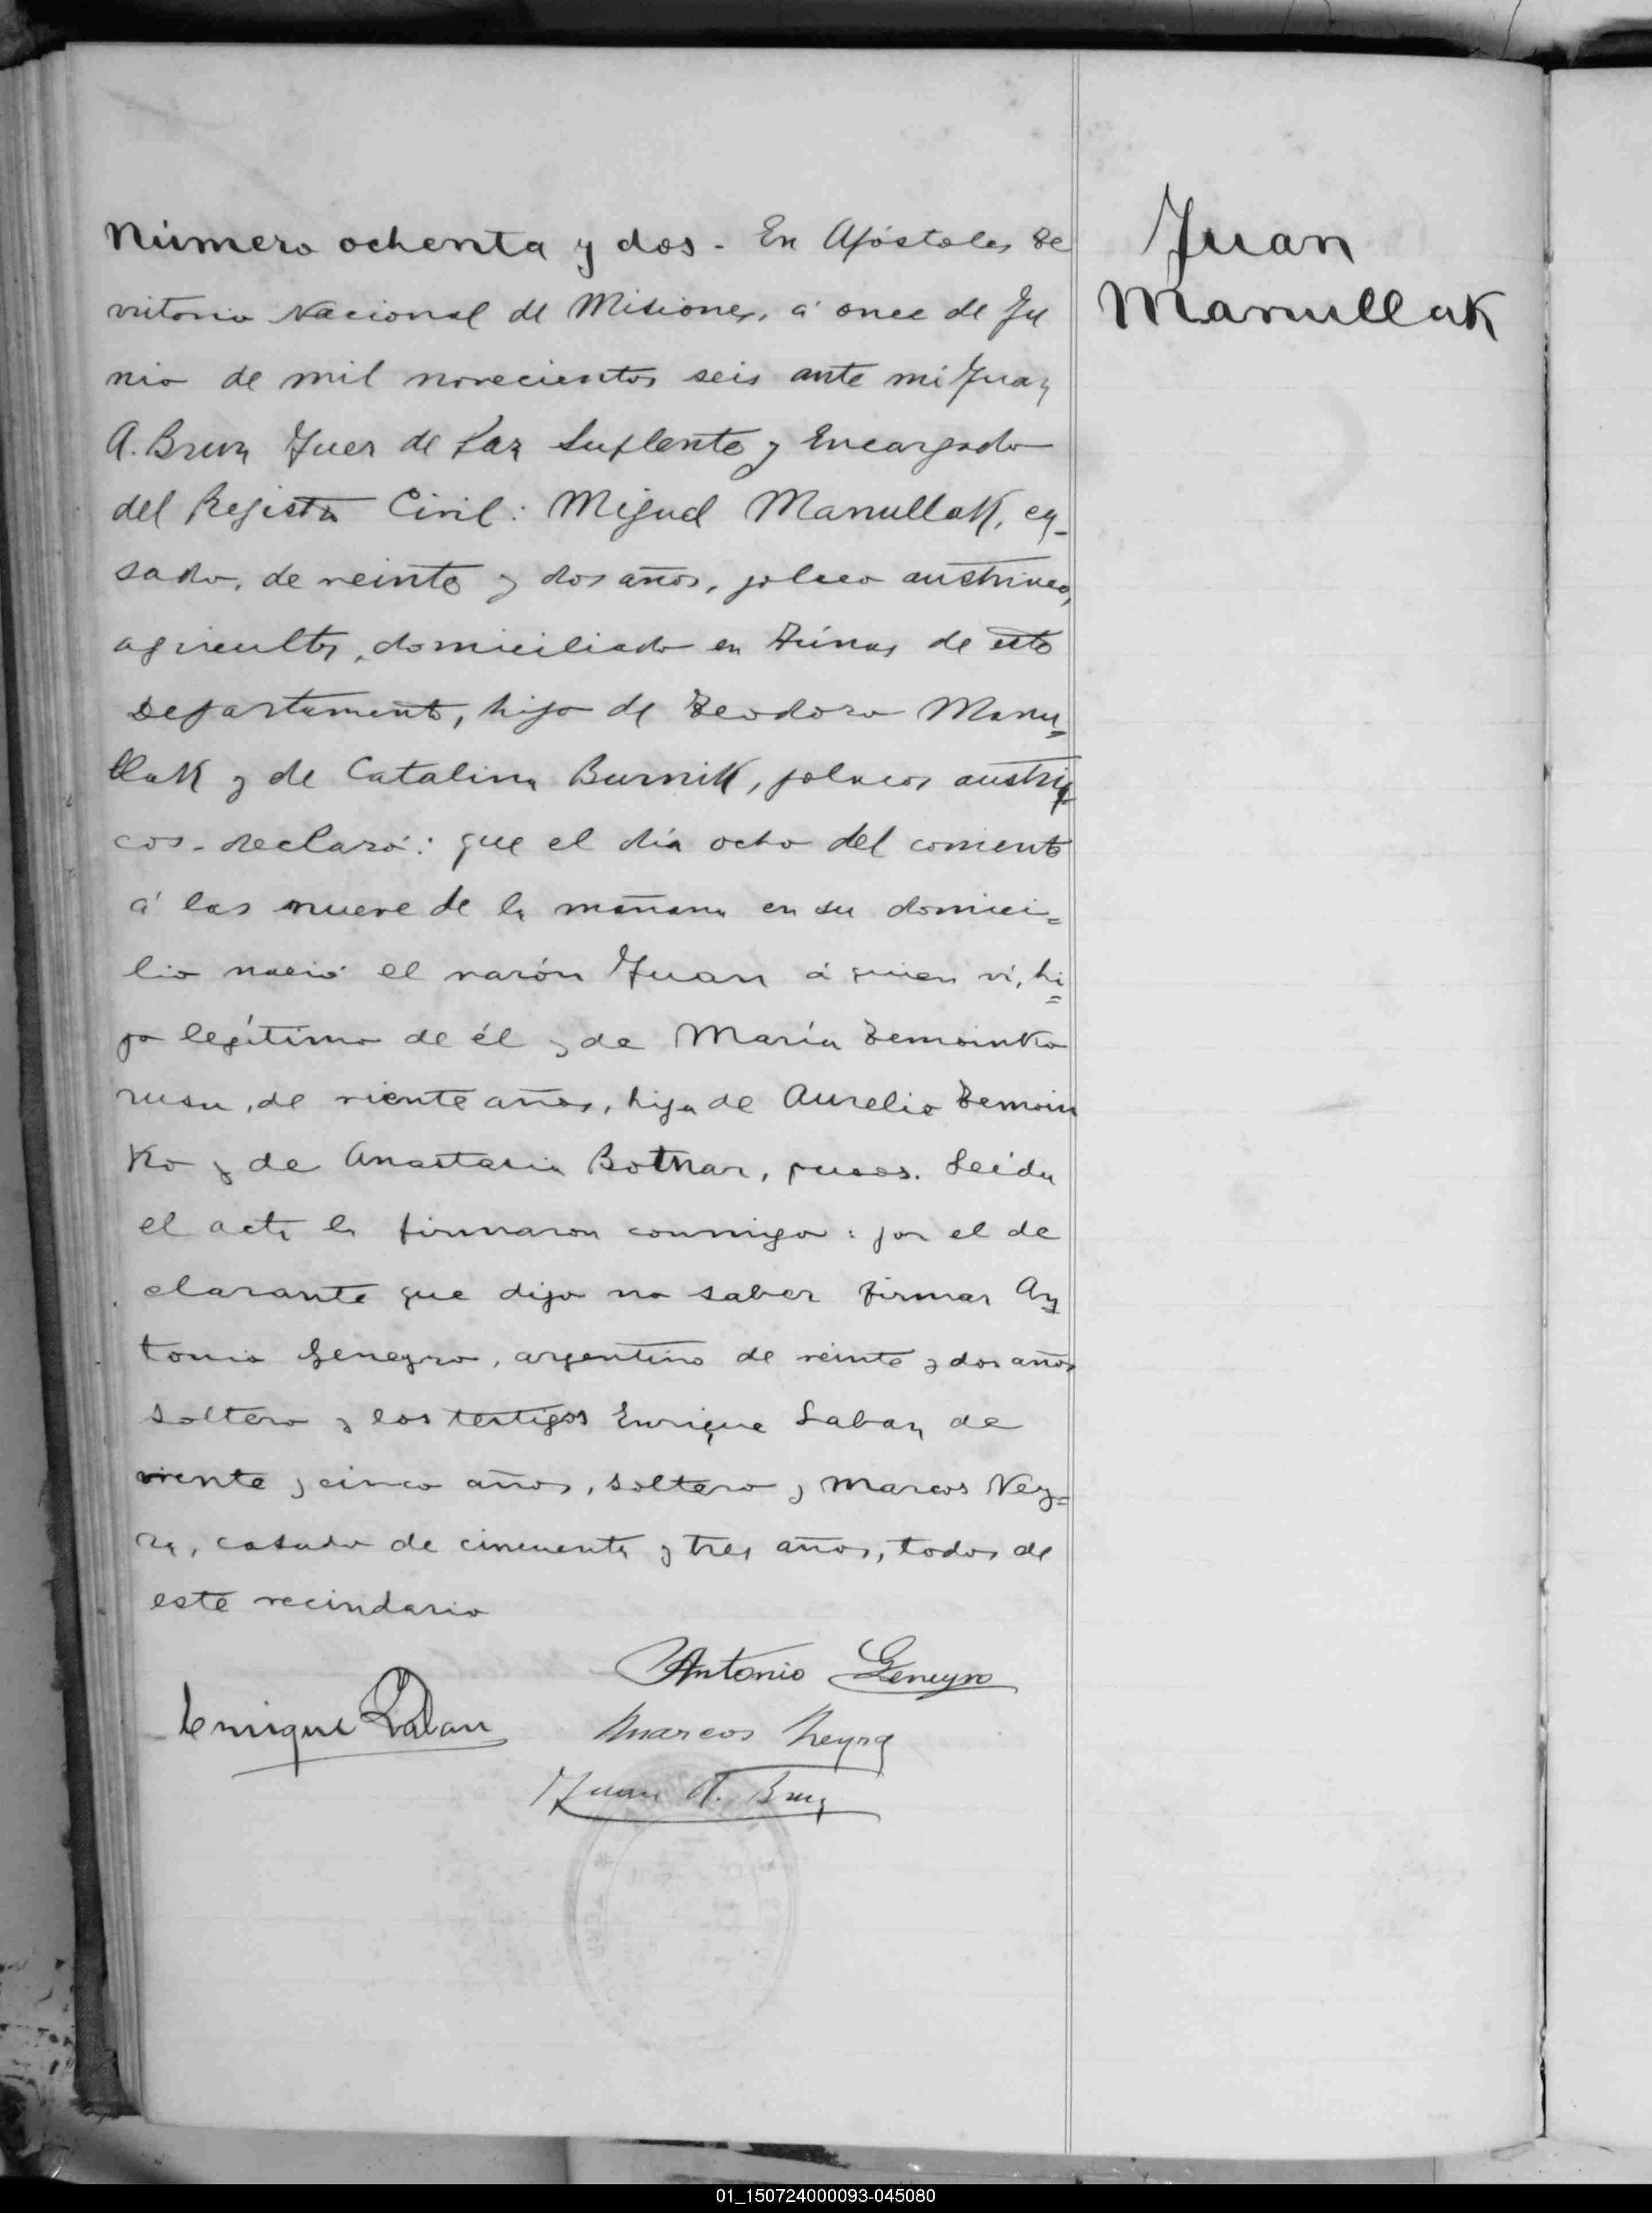 Número ochenta y dos - En Apóstoles Te
rritorio Nacional de Misiones, á once de Ju
nio de mil novecientos seis ante mi Juan
A. Brun Juez de Paz Suplente y Encargado
del Registro Civil: Miguel Manullak, ca-
sado, de veinte y dos años, polaco austriaco,
agricultor, domiciliado en Azúnas de este
Departamento, hijo de Teodoro Manu=
llak y de Catalina Burnik, polacos austria
cos - declaró: que el día ocho del corriente
á las nueve de la mañana en su domici=
lio nació el varón Juan á quien ví, hi=
jo legítimo de él y de María Temoinko
rusa, de viente años, hija de Aurelio Temoin
ko y de Anastasia Botnar, rusos. Leída
el acta la firmaron conmigo: por el de
clarante que dijo no saber firmar An
tonio Geneyro, argentino de veinte y dos años
soltero y los testigos Enrique Laban de
viente y cinco años, soltero y Marcos Ney=
ra, casado de cincuenta y tres años, todos de
este vecindario
Antonio Geneyro
Enrique Laban
Marcos Neyra
Juan A. Brun
Juan
Manullak
01_150724000093-045080